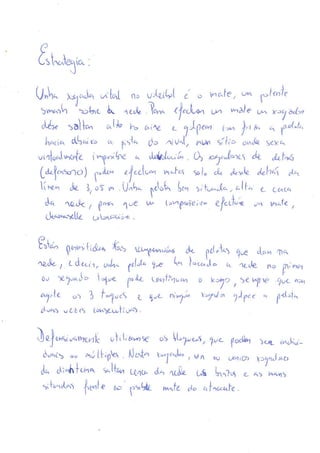 Estratexia:
Unha xogada vital no voleibol é o mate, un potente
smash sobre a rede. Para efectuar un mate un xogador
debe saltar alto no aire e golpear con forza a pelota
hacia abaixo a pista do rival, nun sitio onde sexa
virtualmente imposible a devolución. Os xogadores de detrás
(defensores) poden efectuar mates solo desde detrás da
línea de 3,05 m. Unha pelota ben situada, alta e cerca
da rede, para que un compañeiro efectúe un mate,
chámaselle colocación.
Están permitidas as recuperacións de pelotas que dan na
rede, é decir, unha pelota que foi tocada a rede no primeiro
ou segundo toque pode continuar o xogo, sempre que non
esgote os 3 toques e que ningún xogador golpee a pelota
dúas veces consecutivas.
Defensivamente utilízanse os bloqueos, que poden ser indivi-
duais ou múltiples. Nesta xogada, un ou varios xogadores
da dianteira saltan cerca da rede cos brazos e as mans
situadas fronte ao posible mate do atacante.